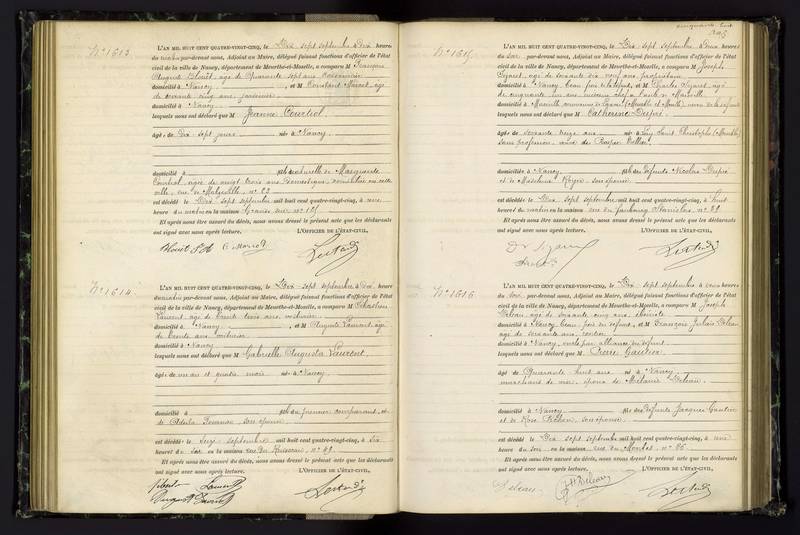 N° 1613
L'AN MIL HUIT CENT QUATRE-VINGT-CINQ, le Dix sept septembre à Dix heures
du matin par-devant nous, Adjoint au Maire, délégué faisant fonctions d'officier de l'état
civil de la ville de Nancy, département de Meurthe-et-Moselle, a comparu M François
Auguste Blouët, âgé de Quarante sept ans
domicilié à Nancy, et M Constant Marot, âgé
de soixante cinq ans
domicilié à Nancy
lesquels nous ont déclaré que M Jeanne Courtiol
âgé de Dix sept jours né à Nancy
domicilié à fille naturelle de Marguerite
Courtiol, âgée de vingt trois ans Domestique, domiciliée en cette
ville, rue de Malzéville, n° 23
est décédé le Dix sept septembre mil huit cent quatre-vingt-cinq, à une
heure du matin en la maison
Et après nous être assuré du décès, nous avons dressé le présent acte que les déclarants
ont signé avec nous après lecture. L'OFFICIER DE L'ÉTAT-CIVIL,
N° 1614
L'AN MIL HUIT CENT QUATRE-VINGT-CINQ, le Dix-sept septembre à Dix heures
du matin par-devant nous, Adjoint au Maire, délégué faisant fonctions d'officier de l'état
civil de la ville de Nancy, département de Meurthe-et-Moselle, a comparu M Sébastien
Laurent, âgé de trente trois ans, voiturier
domicilié à Nancy, et M Auguste Laurent, âgé
de trente ans voiturier
domicilié à Nancy
lesquels nous ont déclaré que M Gabrielle Augusta Laurent,
âgé de un an et quatre mois né à Nancy
domicilié à fille du premier comparant et
de Adèle son épouse
est décédé le Seize septembre mil huit cent quatre-vingt-cinq, à six
heures du soir en la maison rue du Ruisseau, n° 49
Et après nous être assuré du décès, nous avons dressé le présent acte que les déclarants
ont signé avec nous après lecture. L'OFFICIER DE L'ÉTAT-CIVIL,
N° 1615
L'AN MIL HUIT CENT QUATRE-VINGT-CINQ, le Dix sept septembre à deux heures
du soir par-devant nous, Adjoint au Maire, délégué faisant fonctions d'officier de l'état
civil de la ville de Nancy, département de Meurthe-et-Moselle, a comparu M Joseph
âgé de soixante dix neuf ans propriétaire
domicilié à Nancy beau frère et M Charles âgé
de cinquante un ans médecin chef à l'asile de Maréville
domicilié à Maréville
lesquels nous ont déclaré que M Catherine Dupré
âgé de soixante seize ans né à Saint Christophe (Meurthe)
sans profession, veuve de
domicilié à Nancy fille des défunts Nicolas Dupré
et de Madeleine son épouse
est décédé le Dix sept septembre mil huit cent quatre-vingt-cinq, à huit
heures du matin en la maison rue du faubourg Stanislas, n°
Et après nous être assuré du décès, nous avons dressé le présent acte que les déclarants
ont signé avec nous après lecture. L'OFFICIER DE L'ÉTAT-CIVIL,
N° 1616
L'AN MIL HUIT CENT QUATRE-VINGT-CINQ, le Dix sept septembre à heures
du soir par-devant nous, Adjoint au Maire, délégué faisant fonctions d'officier de l'état
civil de la ville de Nancy, département de Meurthe-et-Moselle, a comparu M Joseph
Deleau âgé de soixante cinq ans, ébéniste
domicilié à Nancy beau père du défunt, et M François Deleau
âgé de soixante ans, rentier
domicilié à Nancy, oncle par alliance du défunt
lesquels nous ont déclaré que M Pierre Gautier
âgé de Quarante huit ans né à Nancy
marchand de vin, époux de Mélanie Deleau
domicilié à Nancy fils des défunts Jacques Gautier
et de Rose son épouse
est décédé le Dix sept septembre mil huit cent quatre-vingt-cinq, à une
heure du soir en la maison
Et après nous être assuré du décès, nous avons dressé le présent acte que les déclarants
ont signé avec nous après lecture. L'OFFICIER DE L'ÉTAT-CIVIL,
Deleau